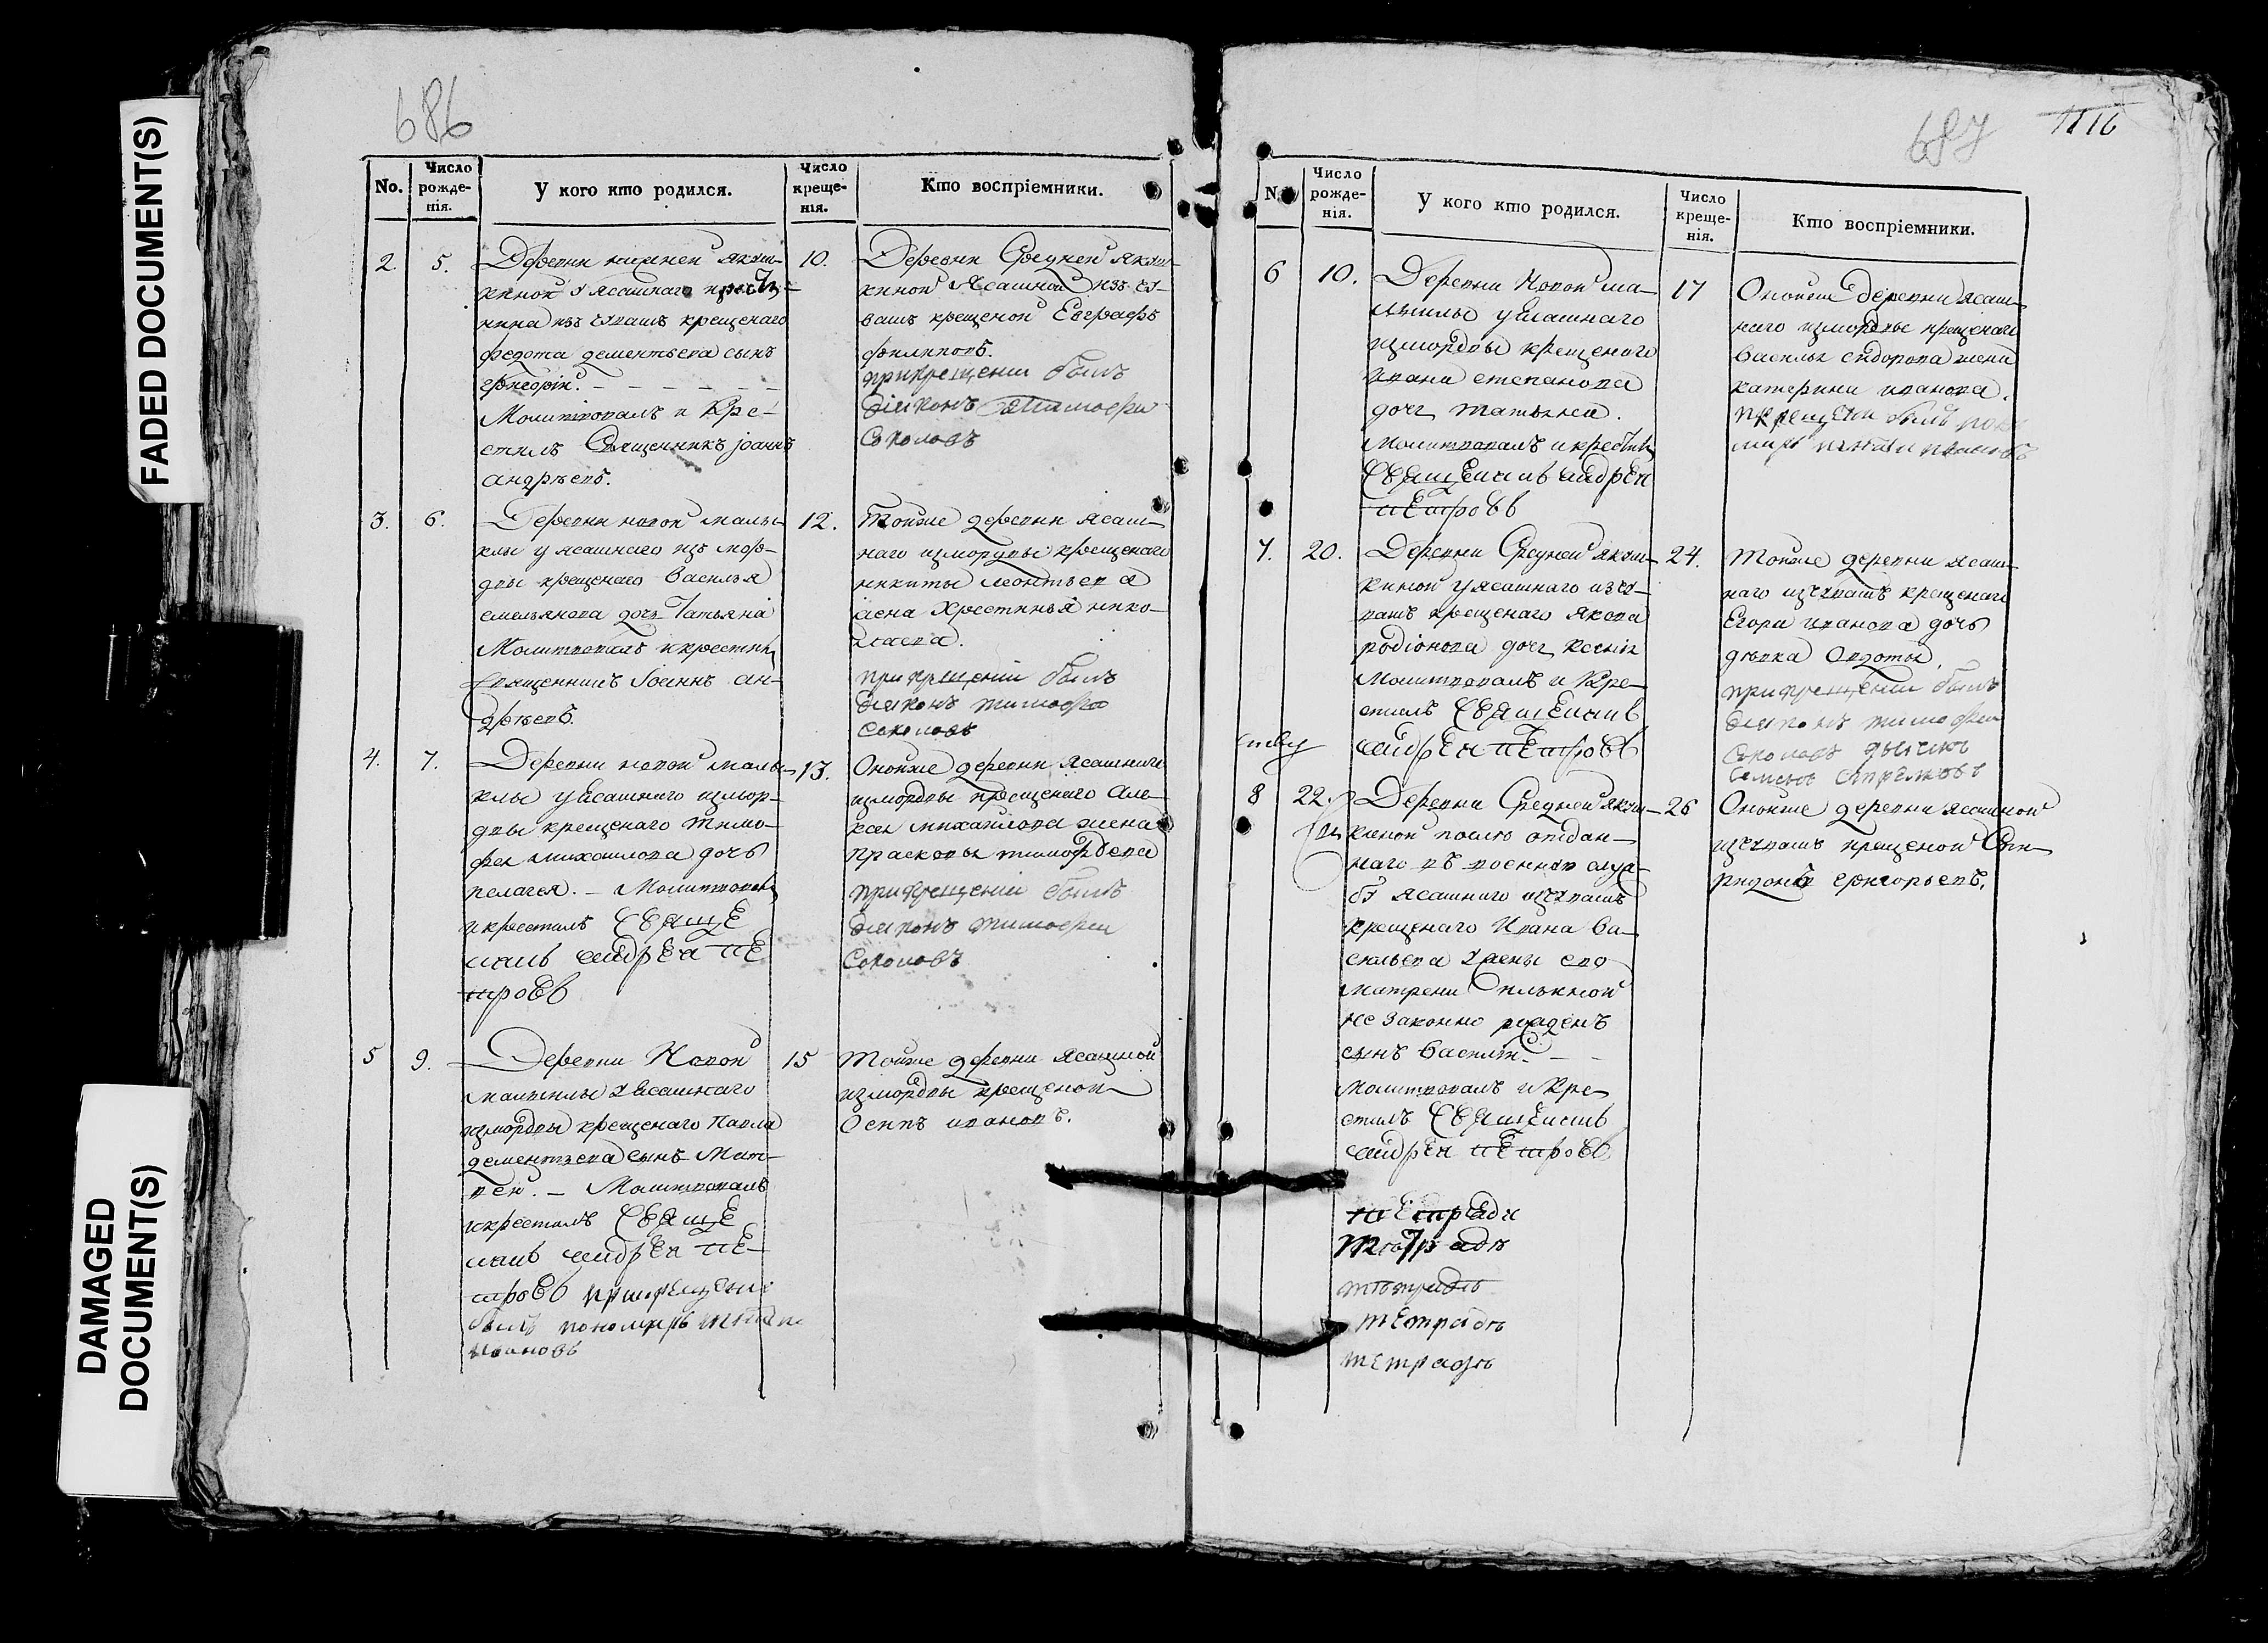 FADED DOCUMENT(S)
DAMAGED
DOCUMENT(S)
686
No.
Число
рожде-
нія.
У кого кто родился.
Число
креще-
нія.
Кто воспріемники.
2
5.
Деревни нижней якуш-
киной у ясашнаго
нина изъ чувашъ крещенаго
федота дементьева сынъ
Молитвовалъ и Кре-
стилъ Священникъ јоаннъ
андрѣевъ.
10.
Деревни Средней якуш-
киной Ясашной изъ чу-
вашъ крещеной Евграфъ
филиповъ.
прикрещении былъ
діяконъ тимофеи
Соколовъ
3.
6.
Деревни новой малы-
клы у ясашнаго изъ морд-
вы крещенаго Василья
емельянова дочь Татьяна
Молитвовалъ и крестилъ
Священникъ Іоаннъ ан-
дрѣевъ.
12.
Тойже деревни ясаш-
наго измордвы крещенаго
никиты леонтьева
жена Христинья нико-
лаева.
прикрещеніи былъ
діяконъ тимофеи
Соколовъ
4.
7.
Деревни новой малы-
клы у ясашнаго измор-
двы крещенаго тимо-
фея михайлова дочь
пелагея. – Молитвовалъ
и крестилъ СВЯщЕ
никъ андрЕи пЕ
троВЪ
13.
Оной же деревни Ясашнаго
измордвы крещенаго Але-
ксея михайлова жена
прасковья тимофеева
прикрещеніи былъ
діяконъ тимофеи
Соколовъ
5
9.
Деревни Новой
малыклы у ясашнаго
измордвы крещенаго Павла
дементьева сынъ Мат-
вей. – Молитвовалъ
и крестилъ СВЯщЕ
никъ андрЕи пЕ-
троВЪ прикрещени
былъ пономарь
ивановъ
15
Тойже деревни ясашной
измордвы крещеной
Осипъ ивановъ.
687
1116
N
Число
рожде-
нія.
У кого кто родился.
Число
креще-
нія.
Кто воспріемники.
6
10.
Деревни Новой ма-
лыклы у ясашнаго
измордвы крещенаго
ивана степанова
дочь татьяна.
Молитвовалъ и крестилъ
СВЯщЕникъ андрЕи
пЕтроВЪ
17
Оной же деревни ясаш-
наго измордвы крещенаго
Василья сидорова жена
катерина иванова.
7.
20.
Деревни Средней якуш-
киной у ясашнаго изъчу-
вашъ крещенаго Якова
родіонова дочь ксенія
Молитвовалъ и Кре-
стилъ СВЯщЕникъ
андрЕи пЕтроВЪ
24.
Тойже деревни ясаш-
наго изчувашъ крещенаго
Егора иванова дочь
дѣвка Овдотья.
прикрещении былъ
діяконъ тимофеи
Соколовъ дьячекъ
Семенъ стрелковъ
8
22.
Деревни Средней якуш-
киной послѣ отдан-
наго въ военную служ-
бу ясашнаго изчувашъ
крещенаго Ивана Ва-
сильева у жены его
матрены ильиной
не законно рожденъ
сынъ Василій. – –
Молитвовалъ и Кре-
стилъ СВЯщЕникъ
андрЕи пЕтроВЪ
26
Оной же деревни ясашной
изчувашъ крещеной Спи-
ридонъ григорьевъ.
тЕтрЕди
тетрадь
тетрадь
тЕтрадь
тЕтрадь